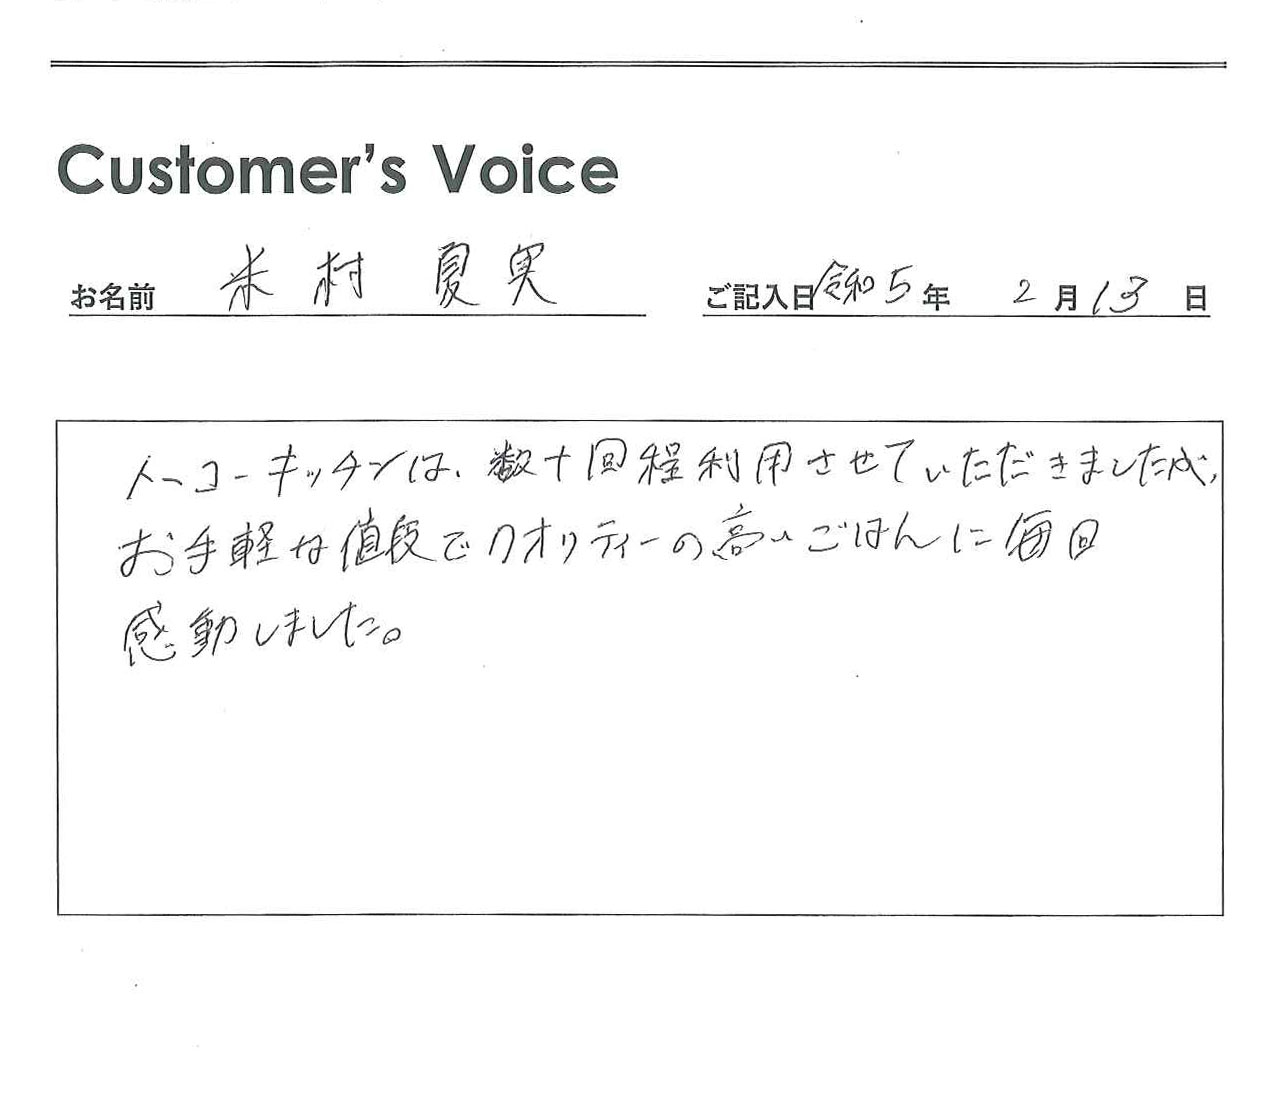 Customer's Voice
お名前 米村 夏実
ご記入日 令和5年 2月13日
トーコーキッチンは、数十回程利用させていただきましたが、
お手軽な値段でクオリティーの高いごはんに毎回
感動しました。